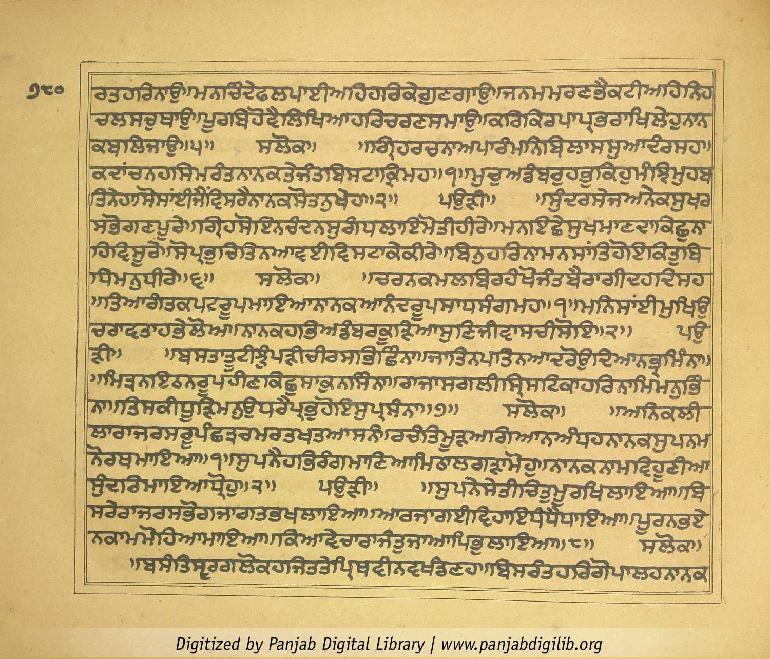 ੭੮੦
ਰਤਹਰਿਨਾਉ॥ਮਨਿਚਿੰਦੇਫਲਪਾਈਅਹਿਹਰਿਕੇਗੁਣਗਾਉ॥ਜਨਮਮਰਣਭੈਕਟੀਅਹਿਨਿਹ
ਚਲਸਚੁਥਾਉ॥ਪੂਰਬਿਹੋਵੈਲਿਖਿਆਹਰਿਚਰਣਸਮਾਉ॥ਕਰਿਕਿਰਪਾਪ੍ਰਭਰਾਖਿਲੇਹੁਨਾਨ
ਕਬਲਿਜਾਉ॥੫॥ ਸਲੋਕ॥ ॥ਗ੍ਰਿਹਰਚਨਾਅਪਾਰੰਮਨਿਬਿਲਾਸਸੁਆਦੰਰਸਹ॥
ਕਦਾਂਚਨਹਸਿਮਰੰਤਨਾਨਕਤੇਜੰਤਬਿਸਟਾਕ੍ਰਿਮਹ॥੧॥ਮੁਚੁਅਡੰਬਰੁਹਭੁਕਿਹੁਮੰਝਿਮੁਹਬ
ਤਿਨੇਹ॥ਸੋਸਾਂਈਜੈਂਵਿਸਰੈਨਾਨਕਸੋਤਨੁਖੇਹ॥੨॥ ਪਉੜੀ॥ ॥ਸੁੰਦਰਸੇਜਅਨੇਕਸੁਖਰ
ਸਭੋਗਣਪੂਰੇ॥ਗ੍ਰਿਹਸੋਇਨਚੰਦਨਸੁਗੰਧਲਾਇਮੋਤੀਹੀਰੇ॥ਮਨਇਛੇਸੁਖਮਾਣਦਾਕਿਛੁਨਾ
ਹਿਵਿਸੂਰੇ॥ਸੋਪ੍ਰਭੁਚਿਤਿਨਆਵਈਵਿਸਟਾਕੇਕੀਰੇ॥ਬਿਨੁਹਰਿਨਾਮਨਸਾਂਤਿਹੋਇਕਿਤੁਬਿ
ਧਿਮਨੁਧੀਰੇ॥੬॥ ਸਲੋਕ॥ ॥ਚਰਨਕਮਲਬਿਰਹੰਖੋਜੰਤਬੈਰਾਗੀਦਹਦਿਸਹ
॥ਤਿਆਗੰਤਕਪਟਰੂਪਮਾਇਆਨਾਨਕਆਨੰਦਰੂਪਸਾਧਸੰਗਮਹ॥੧॥ਮਨਿਸਾਂਈਮੁਖਿਉ
ਚਰਾਵਤਾਹਭੇਲੋਅ॥ਨਾਨਕਹਭਿਅਡੰਬਰਕੂੜਿਆਸੁਣਿਜੀਵਾਸਚੀਸੋਇ॥੨॥ ਪਉ
ੜੀ॥ ॥ਬਸਤਾਤੂਟੀਝੁੰਪੜੀਚੀਰਸਭਿਛਿੰਨਾ॥ਜਾਤਿਨਪਤਿਨਆਦਰੋਉਦਿਆਨਭ੍ਰਮਿੰਨਾ॥
॥ਮਿਤ੍ਰਨਇਠਧਨਰੂਪਹੀਣਕਿਛੁਸਾਕੁਨਸਿੰਨਾ॥ਰਾਜਾਸਗਲੀਸ੍ਰਿਸਟਿਕਾਹਰਿਨਾਮਿਮਨੁਭਿੰ
ਨਾ॥ਤਿਸਕੀਧੂੜਿਮਨੁਉਧਰੈਪ੍ਰਭੁਹੋਇਸੁਪ੍ਰਸੰਨਾ॥੭॥ ਸਲੋਕ॥ ॥ਅਨਿਕਲੀ
ਲਾਰਾਜਰਸਰੂਪੰਛਤ੍ਰਚਮਰਤਖਤਆਸਨੰ॥ਰਚੰਤਿਮੂੜਅਗਿਆਨਅੰਧਹਨਾਨਕਸੁਪਨਮ
ਨੋਰਥਮਾਇਆ॥੧॥ਸੁਪਨੈਹਭਿਰੰਗਮਾਣਿਆਮਿਠਾਲਗੜਾਮੋਹੁ॥ਨਾਨਕਨਾਮਵਿਹੂਣੀਆ
ਸੁੰਦਰਿਮਾਇਆਧ੍ਰੋਹੁ॥੨॥ ਪਉੜੀ॥ ॥ਸੁਪਨੇਸੇਤੀਚਿਤੁਮੂਰਖਿਲਾਇਆ॥ਬਿ
ਸਰੇਰਾਜਰਸਭੋਗਜਾਗਤਭਖਲਾਇਆ॥ਆਰਜਾਗਈਵਿਹਾਇਧੰਧੈਧਾਇਆ॥ਪੂਰਨਭਏ
ਨਕਾਮਮੋਹਿਆਮਾਇਆ॥ਕਿਆਵੇਚਾਰਾਜੰਤੁਜਾਆਪਿਭੁਲਾਇਆ॥੮॥ ਸਲੋਕ॥
॥ਬਸੰਤਿਸ੍ਵਰਗਲੋਕਹਜਿਤਤੇਪ੍ਰਿਥਵੀਨਵਖੰਡਣਹ॥ਬਿਸਰੰਤਹਰਿਗੋਪਾਲਹਨਾਨਕ
Digitized by Panjab Digital Library | www.panjabdigilib.org